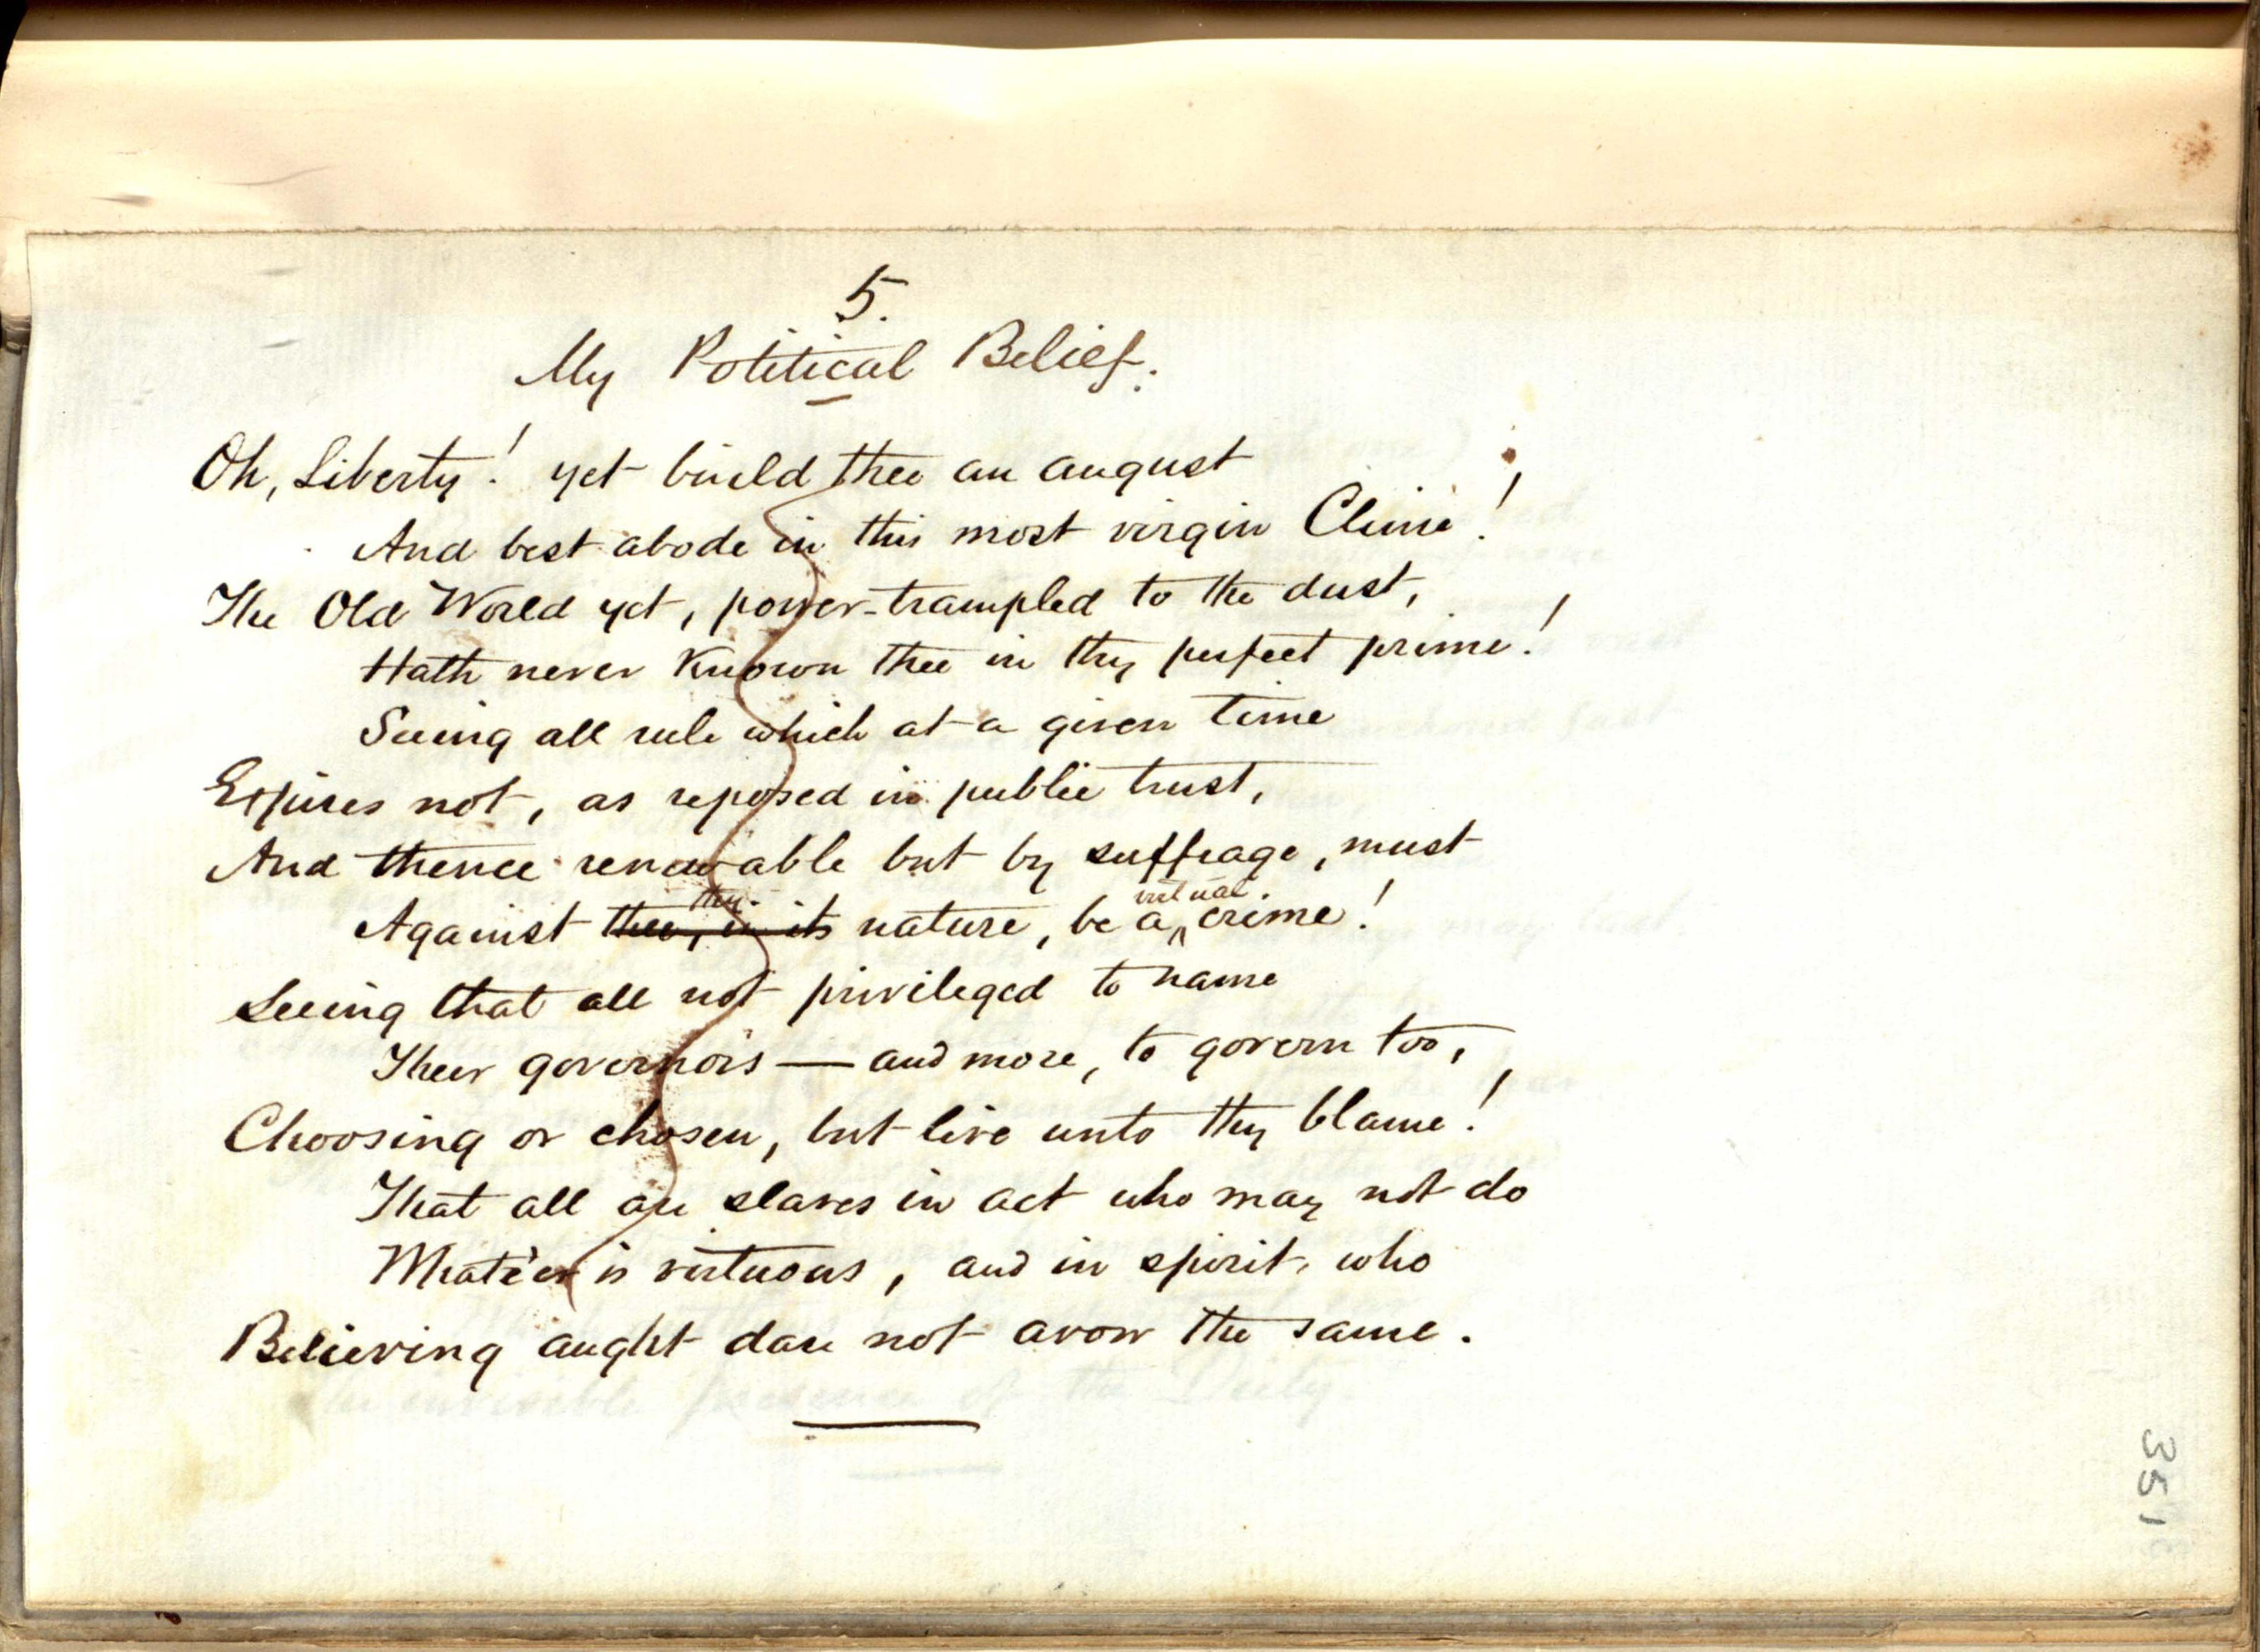 5.
My Political Belief.
Oh, Liberty! yet build thee an august
And best abode in this most virgin Clime!
The Old World yet, power-trampled to the dust,
Hath never known thee in thy perfect prime!
Seeing all rule which at a given time
Expires not, as reposed in public trust,
And thence renewable but by suffrage, must
thy virtual
Against thee, in its nature, be a crime!
Seeing that all not privileged to name
Their governors — and more, to govern too,
Choosing or chosen, but live unto thy blame!
That all are slaves in act who may not do
Whate'er is virtuous, and in spirit, who
Believing aught dare not avow the same.
351